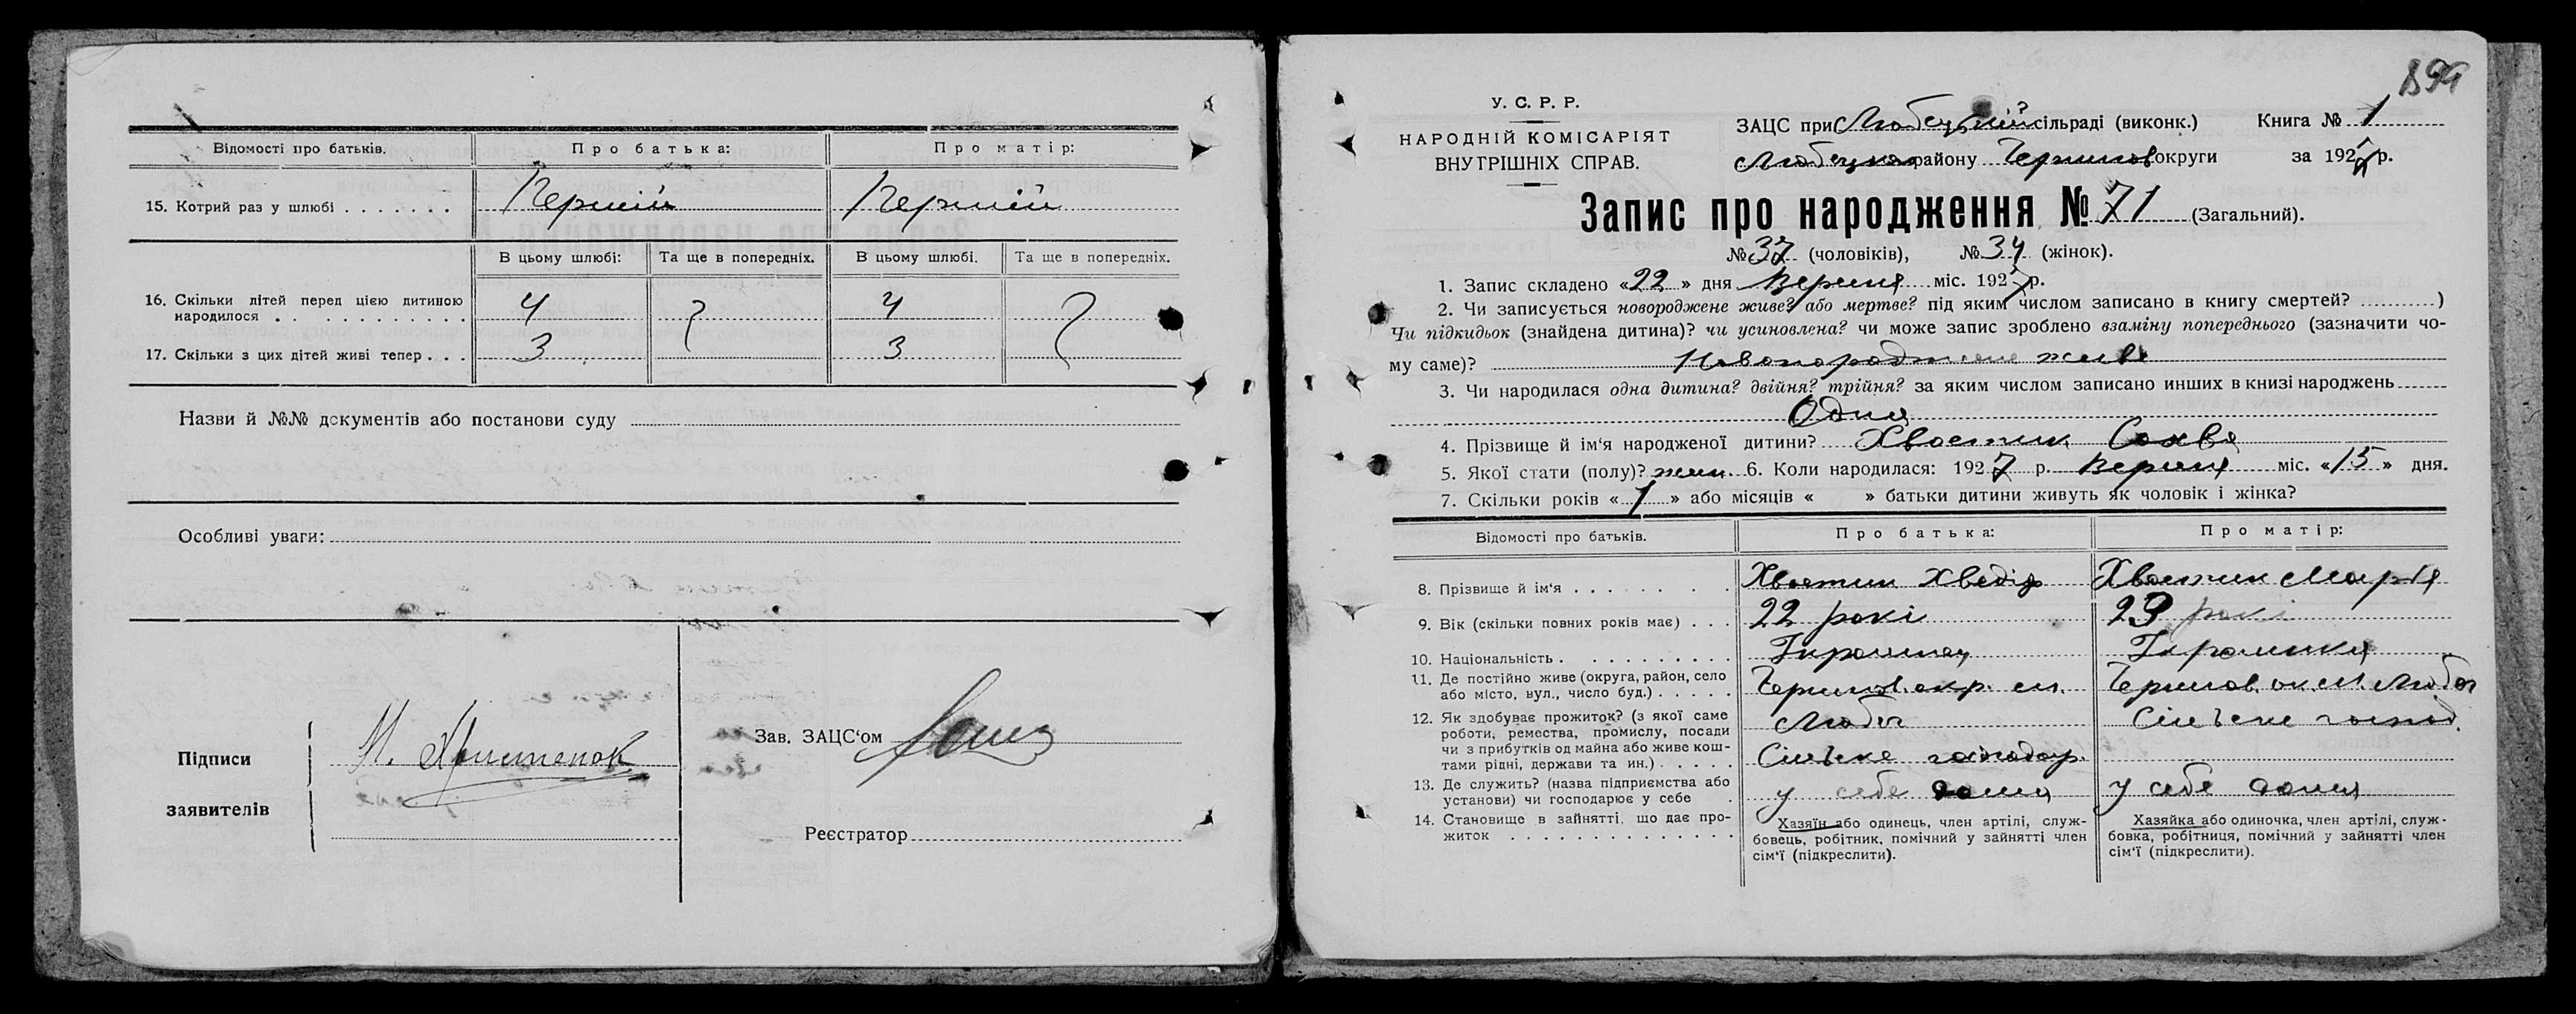 Відомості про батьків. Про батька: Про матір:
15. Котрий раз у шлюбі . . . . . . . Первій Первій
В цьому шлюбі: Та ще в попередніх. В цьому шлюбі. Та ще в попередніх.
16. Скільки дітей перед цією дитиною
народилося . . . . . . . . . . . 4 4
17. Скільки з цих дітей живі тепер . . . 3 3
Назви й №№ документів або постанови суду
Особливі уваги:
Підписи
заявителів
Зав. ЗАЦС'ом
Реєстратор
899
У. С. Р. Р.
НАРОДНІЙ КОМІСАРІЯТ
ВНУТРІШНІХ СПРАВ.
ЗАЦС при Любецькій сільраді (виконк.) Книга № 1
Любецкого району Чернигов округи за 1927 р.
Запис про народження № 71 (Загальний).
№ 37 (чоловіків), № 34 (жінок).
1. Запис складено «22» дня Вересня міс. 1927 р.
2. Чи записується новороджене живе? або мертве? під яким числом записано в книгу смертей? ..........)
Чи підкидьок (знайдена дитина)? чи усиновлена? чи може запис зроблено взаміну попереднього (зазначити чо-
му саме)? Новонароджене живе
3. Чи народилася одна дитина? двійня? трійня? за яким числом записано инших в книзі народжень
Одна
4. Прізвище й ім'я народженої дитини? Хвостик Сохвя
5. Якої стати (полу)? жин. 6. Коли народилася: 1927 р. Вересня міс. «15» дня.
7. Скільки років «1» або місяців « » батьки дитини живуть як чоловік і жінка?
Відомості про батьків. Про батька: Про матір:
8. Прізвище й ім'я . . . . . . . . Хвостик Хведір Хвостик Марія
9. Вік (скільки повних років має) . . . 22 рокі 23 рокі
10. Національність . . . . . . . . . . Українец Українка
11. Де постійно живе (округа, район, село
або місто, вул., число буд.) . . . . . Чернигов. окр. см. Любеч Чернигов. ок см. Любеч
12. Як здобуває прожиток? (з якої саме
роботи, ремества, промислу, посади
чи з прибутків од майна або живе кош-
тами рідні, держави та ин.) . . . . . Сільске господар. Сільске господ.
13. Де служить? (назва підприємства або
установи) чи господарює у себе . у себе дома у себе дома
14. Становище в зайнятті, що дає про-
житок . . . . . . . . . . . . . .
Хазяїн або одинець, член артілі, служ-
бовець, робітник, помічний у зайнятті член
сім'ї (підкреслити).
Хазяйка або одиночка, член артілі, служ-
бовка, робітниця, помічний у зайнятті член
сім'ї (підкреслити).